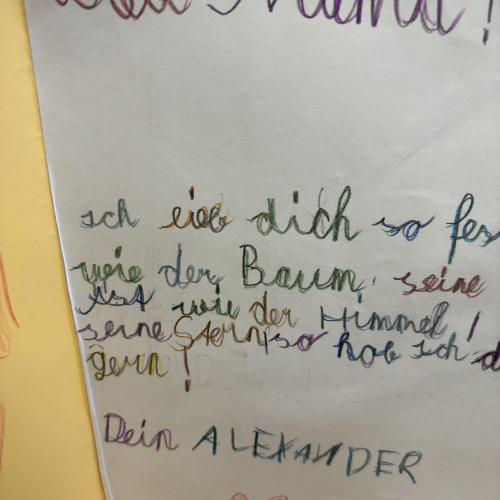 Mama!
ich lieb dich so fes
wie der Baum seine
Äst wie der Himmel,
seine Stern, so hob ich d
gern!
Dein ALEXANDER